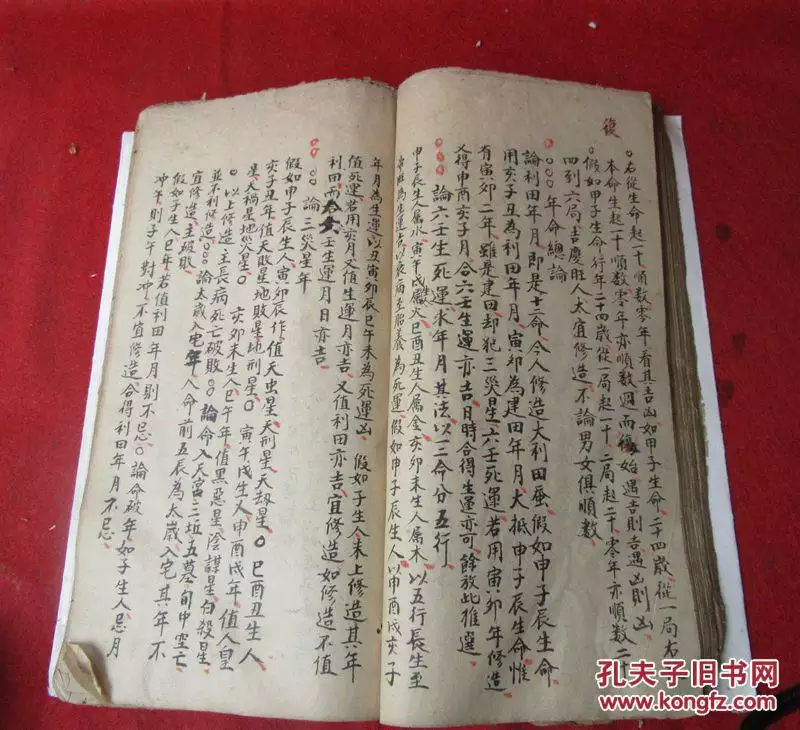 復
右從生命起一十順數零年看其吉凶如甲子生命二十四歲從一局右
本命生起一十順數零年亦順數週而復始遇吉則吉遇凶則凶
假如甲子生命行年二十四歲從一局起一十二局起二十零年亦順數二十
四到六局吉慶旺人大宜修造不論男女俱順數
年命總論
論利田年月即是十二命今人修造大利田蚕假如申子辰生命惟
用亥子丑為利田年月寅卯為建田年月大抵申子辰生命
有寅卯二年雖是建田却犯三災星六壬死運若用寅卯年修造
又得申酉亥子月合六壬生運亦吉日時合得生運亦可餘放此推選
論六壬生死運求年月其法以三命分五行
申子辰生人属水寅午戌生人属火巳酉丑生人属金亥卯未生人属木以五行長生至
帝旺為生運吉以衰病至胎養為死運假如申子辰生人以申酉戌亥子
年月為生運以丑寅卯辰巳午未為死運凶假如子生人未上修造其年
值死運若用亥月又值生運月亦吉又值利田亦吉宜修造如修造不值
利田而六壬生運月日亦吉
論三災星年
假如申子辰生人寅卯辰作值天虫星天刑星天刼星巳酉丑生人
亥子丑年值天敗星地敗星地刑星寅午戌生人申酉戌年值人皇
星天禍星地災星亥卯未生人巳午年值黑惡星陰謀星白殺星
以上修造主長病死亡破敗論命入天宮三坵五墓旬中空亡
並不利修造論太歲入宅年人命前五辰為太歲入宅其年不
宜修造主破敗
假如子生人巳年若值利田年月則不忌論命破年如子生人忌月
冲午則子午對冲不宜修造合得利田年月不忌
孔夫子旧书网
www.kongfz.com